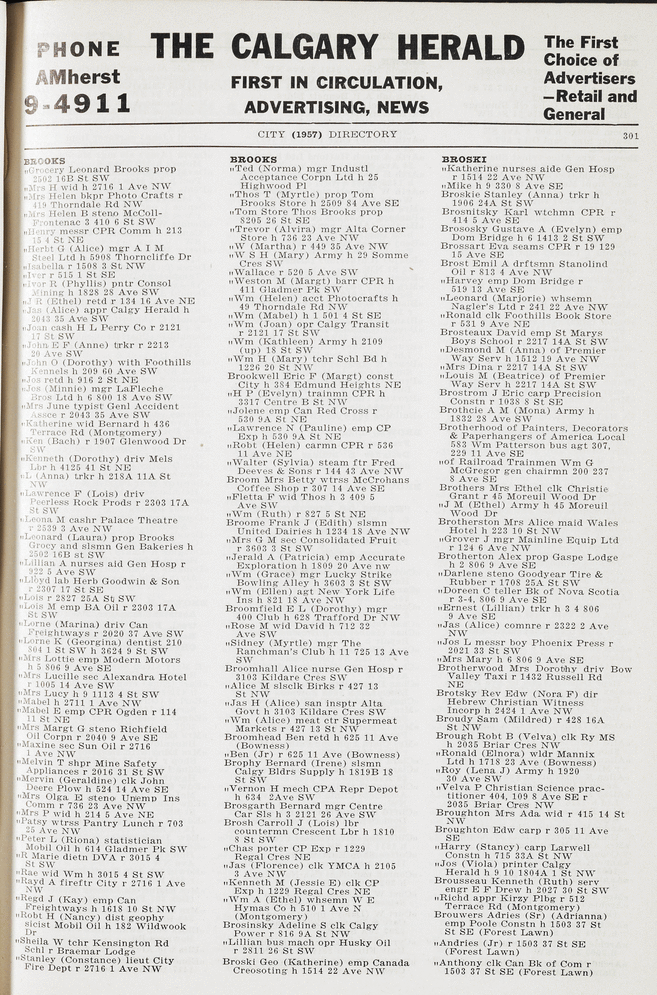 PHONE
AMherst
9-4911
THE CALGARY HERALD
FIRST IN CIRCULATION,
ADVERTISING, NEWS
The First
Choice of
Advertisers
—Retail and
General
CITY (1957) DIRECTORY
301
BROOKS
"Grocery Leonard Brooks prop
2502 16B St SW
"Mrs H wid h 2716 1 Ave NW
"Mrs Helen bkpr Photo Crafts r
419 Thorndale Rd NW
"Mrs Helen B steno McColl-
Frontenac 3 410 6 St SW
"Henry messr CPR Comm h 213
15 4 St NE
"Herbt G (Alice) mgr A I M
Steel Ltd h 5908 Thorncliffe Dr
"Isabella r 1508 3 St NW
"Iver r 515 1 St SE
"Ivor R (Phyllis) pntr Consol
Mining h 1828 28 Ave SW
"J R (Ethel) retd r 134 16 Ave NE
"Jas (Alice) appr Calgary Herald h
2043 35 Ave SW
"Joan cash H L Perry Co r 2121
17 St SW
"John E F (Anne) trkr r 2213
20 Ave SW
"John O (Dorothy) with Foothills
Kennels h 209 60 Ave SW
"Jos retd h 916 2 St NE
"Jos (Minnie) mgr LaFleche
Bros Ltd h 6 800 18 Ave SW
"Mrs June typist Genl Accident
Assce r 2043 35 Ave SW
"Katherine wid Bernard h 436
Terrace Rd (Montgomery)
"Ken (Bach) r 1907 Glenwood Dr
SW
"Kenneth (Dorothy) driv Mels
Lbr h 4125 41 St NE
"L (Anna) trkr h 218A 11A St
NW
"Lawrence F (Lois) driv
Peerless Rock Prods r 2303 17A
St SW
"Leona M cashr Palace Theatre
r 2539 3 Ave NW
"Leonard (Laura) prop Brooks
Grocy and slsmn Gen Bakeries h
2502 16B St SW
"Lillian A nurses aid Gen Hosp r
922 5 Ave SW
"Lloyd lab Herb Goodwin & Son
r 2307 17 St SE
"Lois r 2827 25A St SW
"Lois M emp BA Oil r 2303 17A
St SW
"Lorne (Marina) driv Can
Freightways r 2020 37 Ave SW
"Lorne K (Georgina) dentist 210
804 1 St SW h 3624 9 St SW
"Mrs Lottie emp Modern Motors
h 5 806 9 Ave SE
"Mrs Lucille sec Alexandra Hotel
r 1005 14 Ave SW
"Mrs Lucy h 9 1113 4 St SW
"Mabel h 2711 1 Ave NW
"Mabel E emp CPR Ogden r 114
11 St NE
"Mrs Margt G steno Richfield
Oil Corpn r 2040 9 Ave SE
"Maxine sec Sun Oil r 2716
1 Ave NW
"Melvin T shpr Mine Safety
Appliances r 2016 31 St SW
"Mervin (Geraldine) clk John
Deere Plow h 524 14 Ave SE
"Mrs Olga E steno Unemp Ins
Comm r 736 23 Ave NW
"Mrs P wid h 214 5 Ave NE
"Patsy wtrss Pantry Lunch r 703
25 Ave NW
"Peter L (Riona) statistician
Mobil Oil h 614 Gladmer Pk SW
"R Marie dietn DVA r 3015 4
St SW
"Rae wid Wm h 3015 4 St SW
"Rayd A fireftr City r 2716 1 Ave
NW
"Regd J (Kay) emp Can
Freightways h 1618 10 St NW
"Robt H (Nancy) dist geophy
sicist Mobil Oil h 182 Wildwook
Dr
"Sheila W tchr Kensington Rd
Schl r Braemar Lodge
"Stanley (Constance) lieut City
Fire Dept r 2716 1 Ave NW
BROOKS
"Ted (Norma) mgr Industl
Acceptance Corpn Ltd h 25
Highwood Pl
"Thos T (Myrtle) prop Tom
Brooks Store h 2509 84 Ave SE
"Tom Store Thos Brooks prop
8205 26 St SE
"Trevor (Alvira) mgr Alta Corner
Store h 736 23 Ave NW
"W (Martha) r 449 35 Ave NW
"W S H (Mary) Army h 29 Somme
Cres SW
"Wallace r 520 5 Ave SW
"Weston M (Margt) barr CPR h
411 Gladmer Pk SW
"Wm (Helen) acct Photocrafts h
49 Thorndale Rd NW
"Wm (Mabel) h 1 501 4 St SE
"Wm (Joan) opr Calgary Transit
r 2121 17 St SW
"Wm (Kathleen) Army h 2109
(up) 18 St SW
"Wm H (Mary) tchr Schl Bd h
1226 20 St NW
Brookwell Eric F (Margt) const
City h 384 Edmund Heights NE
"H P (Evelyn) trainmn CPR h
3317 Centre B St NW
"Jolene emp Can Red Cross r
530 9A St NE
"Lawrence N (Pauline) emp CP
Exp h 530 9A St NE
"Robt (Helen) carmn CPR r 536
11 Ave NE
"Walter (Sylvia) steam ftr Fred
Deeves & Sons r 144 43 Ave NW
Broom Mrs Betty wtrss McCrohans
Coffee Shop r 307 14 Ave SE
"Fletta F wid Thos h 3 409 5
Ave SW
"Wm (Ruth) r 827 5 St NE
Broome Frank J (Edith) slsmn
United Dairies h 1234 18 Ave NW
"Mrs G M sec Consolidated Fruit
r 3603 3 St SW
"Jerald A (Patricia) emp Accurate
Exploration h 1809 20 Ave nw
"Wm (Grace) mgr Lucky Strike
Bowling Alley h 3603 3 St SW
"Wm (Ellen) agt New York Life
Ins h 821 18 Ave NW
Broomfield E L (Dorothy) mgr
400 Club h 628 Trafford Dr NW
"Rose M wid David h 712 32
Ave SW
"Sidney (Myrtle) mgr The
Ranchman's Club h 11 725 13 Ave
SW
Broomhall Alice nurse Gen Hosp r
3103 Kildare Cres SW
"Alice M slsclk Birks r 427 13
St NW
"Jas H (Alice) san insptr Alta
Govt h 3103 Kildare Cres SW
"Wm (Alice) meat ctr Supermeat
Markets r 427 13 St NW
Broomhead Ben retd h 625 11 Ave
(Bowness)
"Ben (Jr) r 625 11 Ave (Bowness)
Brophy Bernard (Irene) slsmn
Calgy Bldrs Supply h 1819B 18
St SW
"Vernon H mech CPA Repr Depot
h 634 2Ave SW
Brosgarth Bernard mgr Centre
Car Sls h 3 2121 26 Ave SW
Brosh Carroll J (Lois) lbr
countermn Crescent Lbr h 1810
8 St SW
"Chas porter CP Exp r 1229
Regal Cres NE
"Jas (Florence) clk YMCA h 2105
3 Ave NW
"Kenneth M (Jessie E) clk CP
Exp h 1229 Regal Cres NE
"Wm A (Ethel) whsemn W E
Hymas Co h 510 1 Ave N
(Montgomery)
Brosinsky Adeline S clk Calgy
Power r 816 9A St NW
"Lillian bus mach opr Husky Oil
r 2811 26 St SW
Broski Geo (Katherine) emp Canada
Creosoting h 1514 22 Ave NW
BROSKI
"Katherine nurses aide Gen Hosp
r 1514 22 Ave NW
"Mike h 9 330 8 Ave SE
Broskie Stanley (Anna) trkr h
1906 24A St SW
Brosnitsky Karl wtchmn CPR r
414 5 Ave SE
Brososky Gustave A (Evelyn) emp
Dom Bridge h 6 1413 2 St SW
Brossart Eva seams CPR r 19 129
15 Ave SE
Brost Emil A drftsmn Stanolind
Oil r 813 4 Ave NW
"Harvey emp Dom Bridge r
519 13 Ave SE
"Leonard (Marjorie) whsemn
Nagler's Ltd r 241 22 Ave NW
"Ronald clk Foothills Book Store
r 531 9 Ave NE
Brosteaux David emp St Marys
Boys School r 2217 14A St SW
"Desmond M (Anna) of Premier
Way Serv h 1512 19 Ave NW
"Mrs Dina r 2217 14A St SW
"Louis M (Beatrice) of Premier
Way Serv h 2217 14A St SW
Brostrom J Eric carp Precision
Constn r 1038 8 St SE
Brothcie A M (Mona) Army h
1832 28 Ave SW
Brotherhood of Painters, Decorators
& Paperhangers of America Local
583 Wm Patterson bus agt 307,
229 11 Ave SE
"of Railroad Trainmen Wm G
McGregor gen chairmn 200 237
8 Ave SE
Brothers Mrs Ethel clk Christie
Grant r 45 Moreuil Wood Dr
"J M (Ethel) Army h 45 Moreuil
Wood Dr
Brotherston Mrs Alice maid Wales
Hotel h 223 10 St NW
"Grover J mgr Mainline Equip Ltd
r 124 6 Ave NW
Brotherton Alex prop Gaspe Lodge
h 2 806 9 Ave SE
"Darlene steno Goodyear Tire &
Rubber r 1708 25A St SW
"Doreen C teller Bk of Nova Scotia
r 3-4, 806 9 Ave SE
"Ernest (Lillian) trkr h 3 4 806
9 Ave SE
"Jas (Alice) comnre r 2322 2 Ave
NW
"Jos L messr boy Phoenix Press r
2021 33 St SW
"Mrs Mary h 6 806 9 Ave SE
Brotherwood Mrs Dorothy driv Bow
Valley Taxi r 1432 Russell Rd
NE
Brotsky Rev Edw (Nora F) dir
Hebrew Christian Witness
Incorp h 2424 1 Ave NW
Broudy Sam (Mildred) r 428 16A
St NW
Brough Robt B (Velva) clk Ry MS
h 2035 Briar Cres NW
"Ronald (Elnora) wldr Mannix
Ltd h 1718 23 Ave (Bowness)
"Roy (Lena J) Army h 1920
30 Ave SW
"Velva P Christian Science prac-
titioner 404, 109 8 Ave SE r
2035 Briar Cres NW
Broughton Mrs Ada wid r 415 14 St
NW
Broughton Edw carp r 305 11 Ave
SE
"Harry (Stancy) carp Larwell
Constn h 715 33A St NW
"Jos (Viola) printer Calgy
Herald h 9 10 1804A 1 St NW
Brousseau Kenneth (Ruth) serv
engr E F Drew h 2027 30 St SW
"Richd appr Kirzy Plbg r 512
Terrace Rd (Montgomery)
Brouwers Adries (Sr) (Adrianna)
emp Poole Constn h 1503 37 St
St SE (Forest Lawn)
"Andries (Jr) r 1503 37 St SE
(Forest Lawn)
"Anthony clk Can Bk of Com r
1503 37 St SE (Forest Lawn)